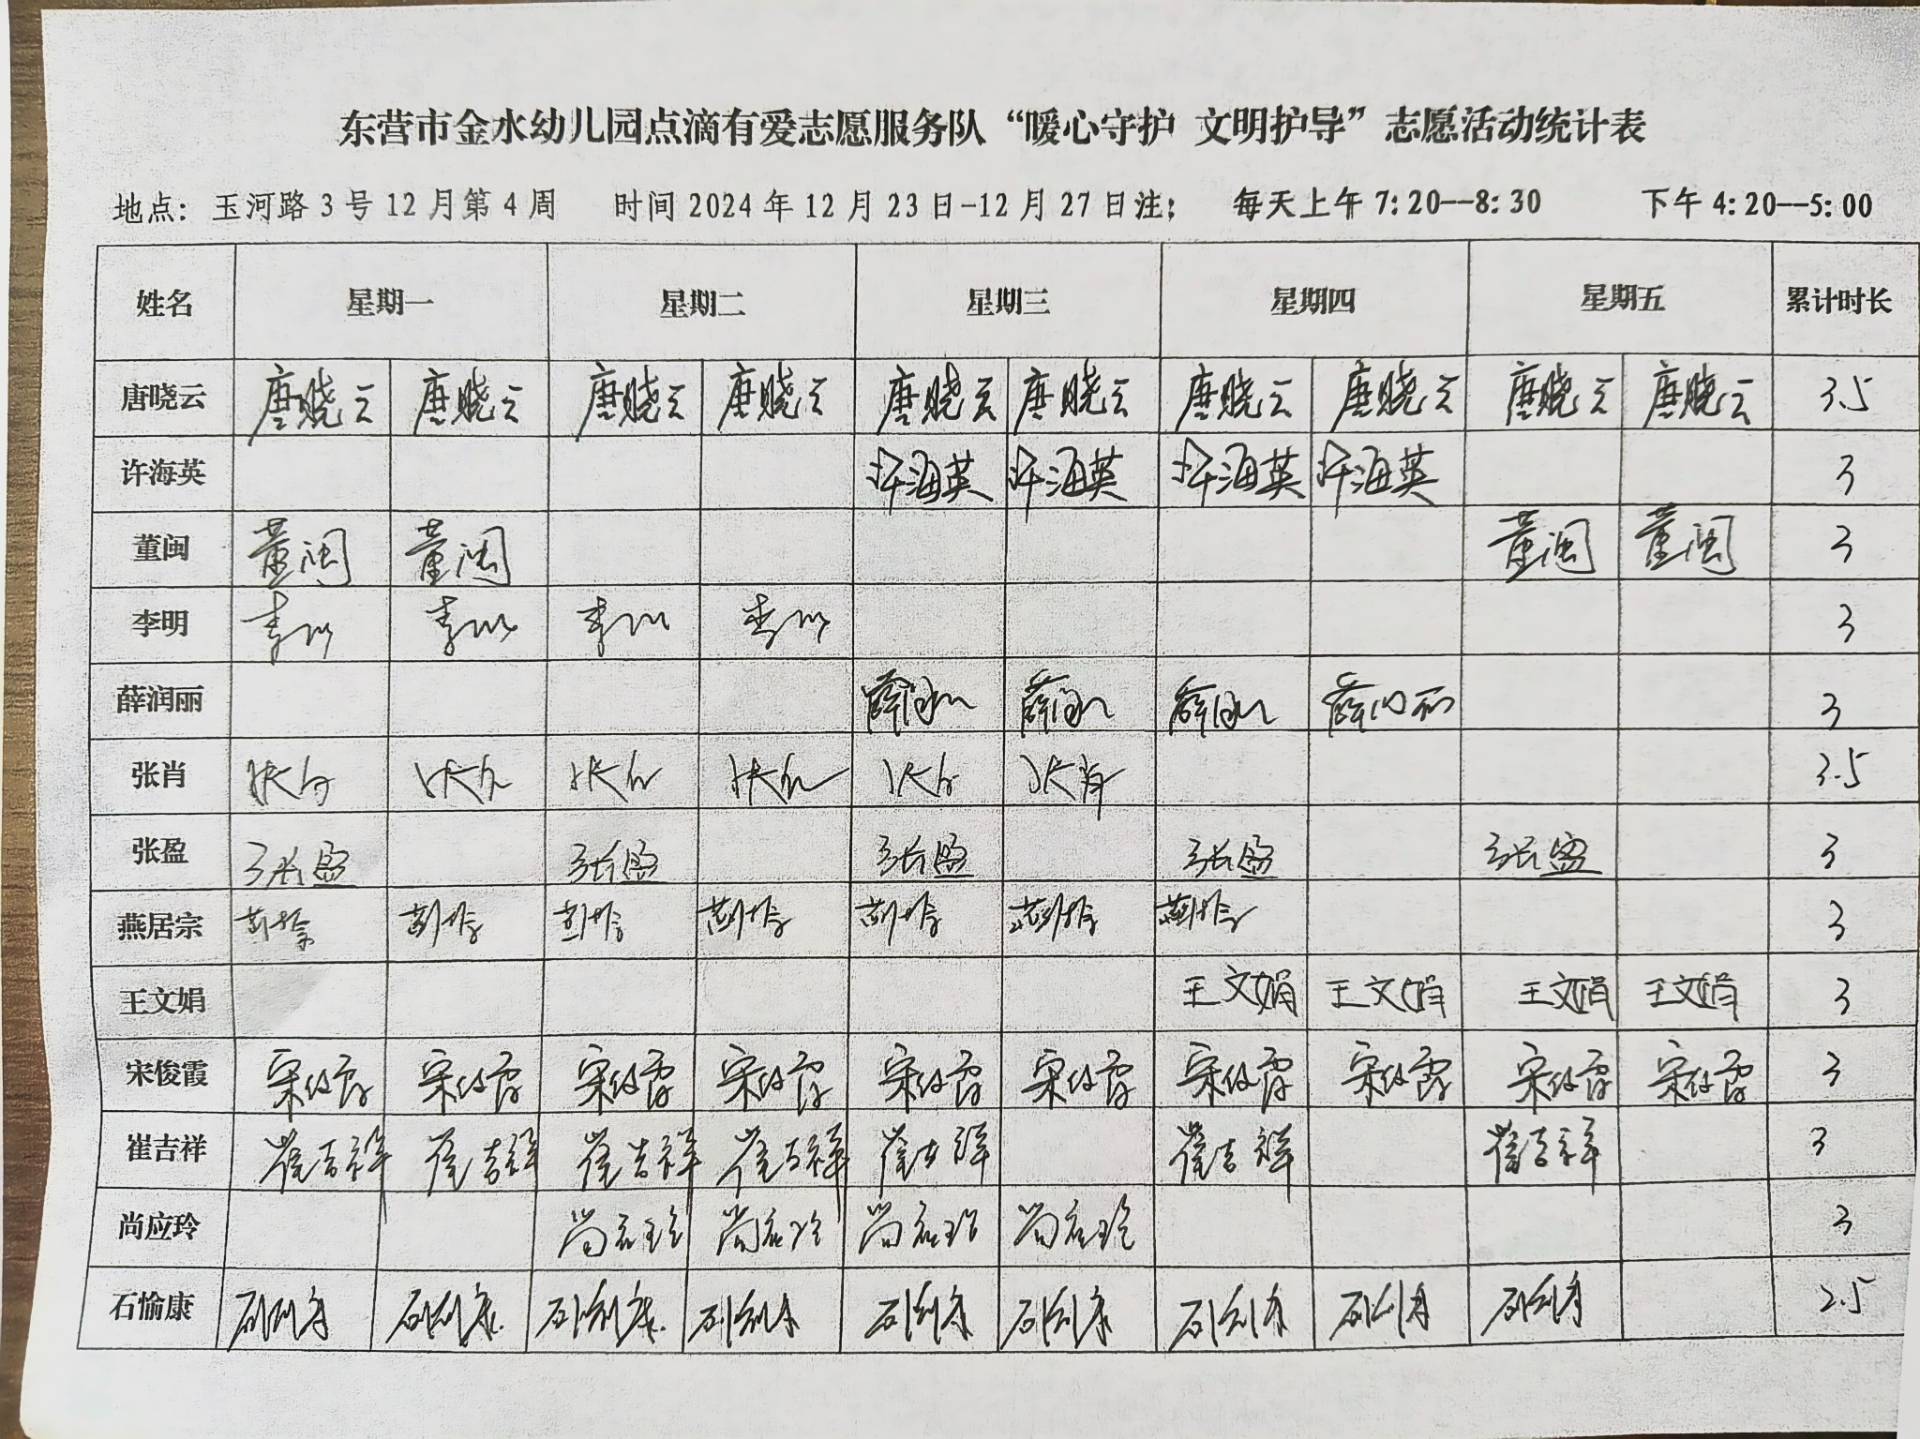 东营市金水幼儿园点滴有爱志愿服务队“暖心守护 文明护导”志愿活动统计表
地点: 玉河路3号12月第4周 时间2024年12月23日-12月27日注: 每天上午7:20--8:30 下午4:20--5:00
姓名 星期一 星期二 星期三 星期四 星期五 累计时长
唐晓云 唐晓云 唐晓云 唐晓云 唐晓云 唐晓云 唐晓云 唐晓云 唐晓云 唐晓云 唐晓云 3.5
许海英 许海英 许海英 许海英 许海英 3
董闽 董闽 董闽 董闽 董闽 3
李明 李明 李明 李明 李明 3
薛润丽 薛润丽 薛润丽 薛润丽 薛润丽 3
张肖 张肖 张肖 张肖 张肖 张肖 张肖 3.5
张盈 张盈 张盈 张盈 张盈 张盈 3
燕居宗 3
王文娟 王文娟 王文娟 王文娟 王文娟 3
宋俊霞 宋俊霞 宋俊霞 宋俊霞 宋俊霞 宋俊霞 宋俊霞 宋俊霞 宋俊霞 宋俊霞 宋俊霞 3
崔吉祥 崔吉祥 崔吉祥 崔吉祥 崔吉祥 崔吉祥 崔吉祥 崔吉祥 3
尚应玲 尚应玲 尚应玲 尚应玲 尚应玲 3
石愉康 石愉康 石愉康 石愉康 石愉康 石愉康 石愉康 石愉康 石愉康 石愉康 2.5